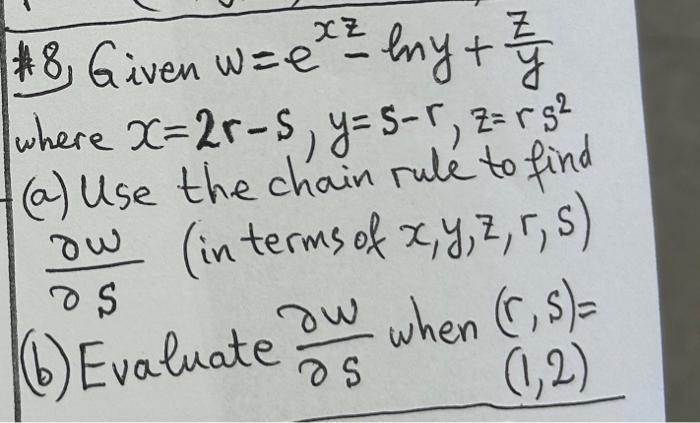 #8, Given w=e^{xz} - ln y + z/y
where x=2r-s, y=s-r, z=rs²
(a) Use the chain rule to find
∂w/∂s (in terms of x,y,z,r,s)
(b) Evaluate ∂w/∂s when (r,s)=
(1,2)